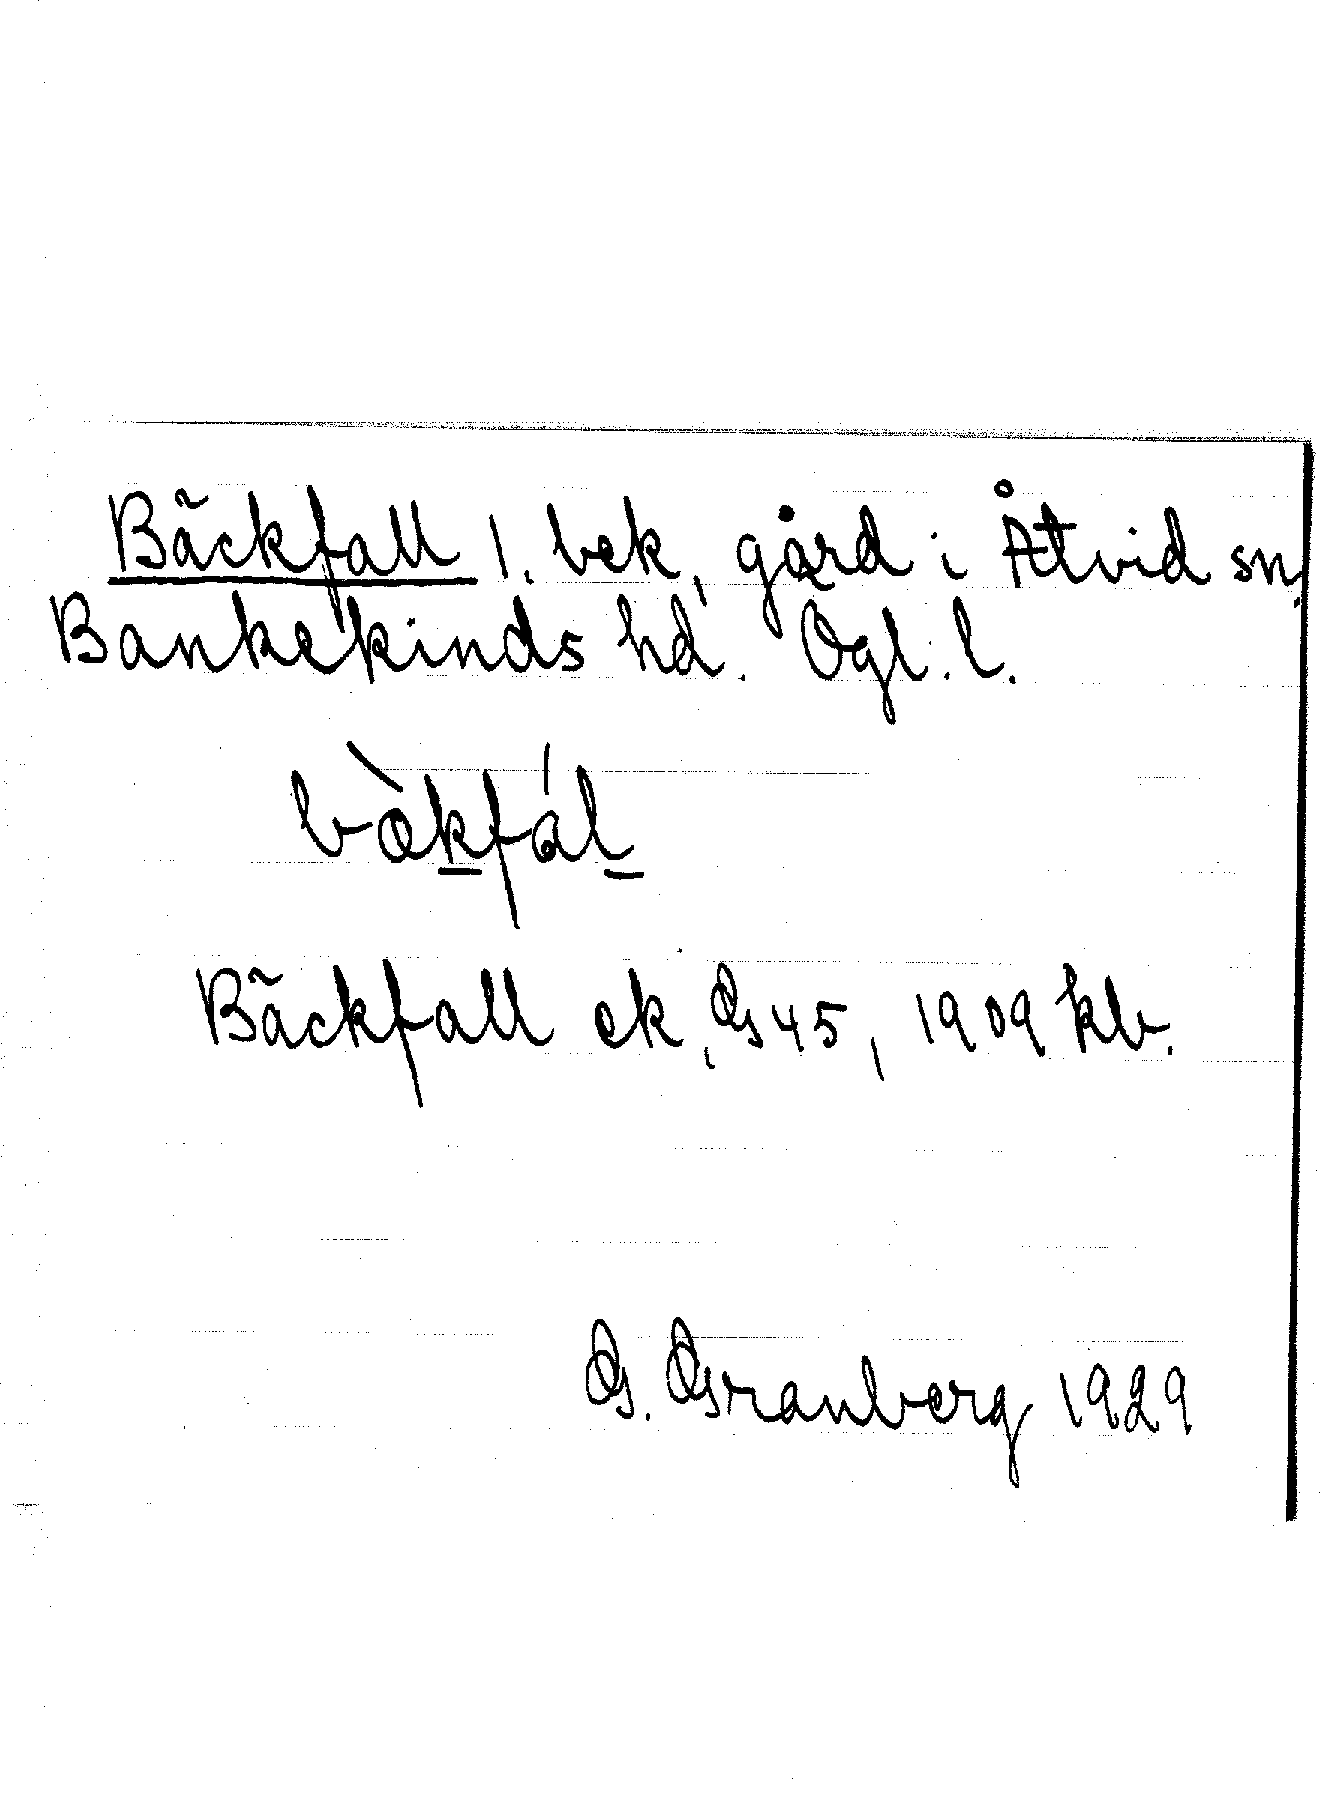 Bäckfall 1. bek, gård i Åtvid sn,
Bankekinds hd. Ögl. l.
bæ̀kfál
Bäckfall ek, Gs 45, 1909 kb.
G. Granberg 1929